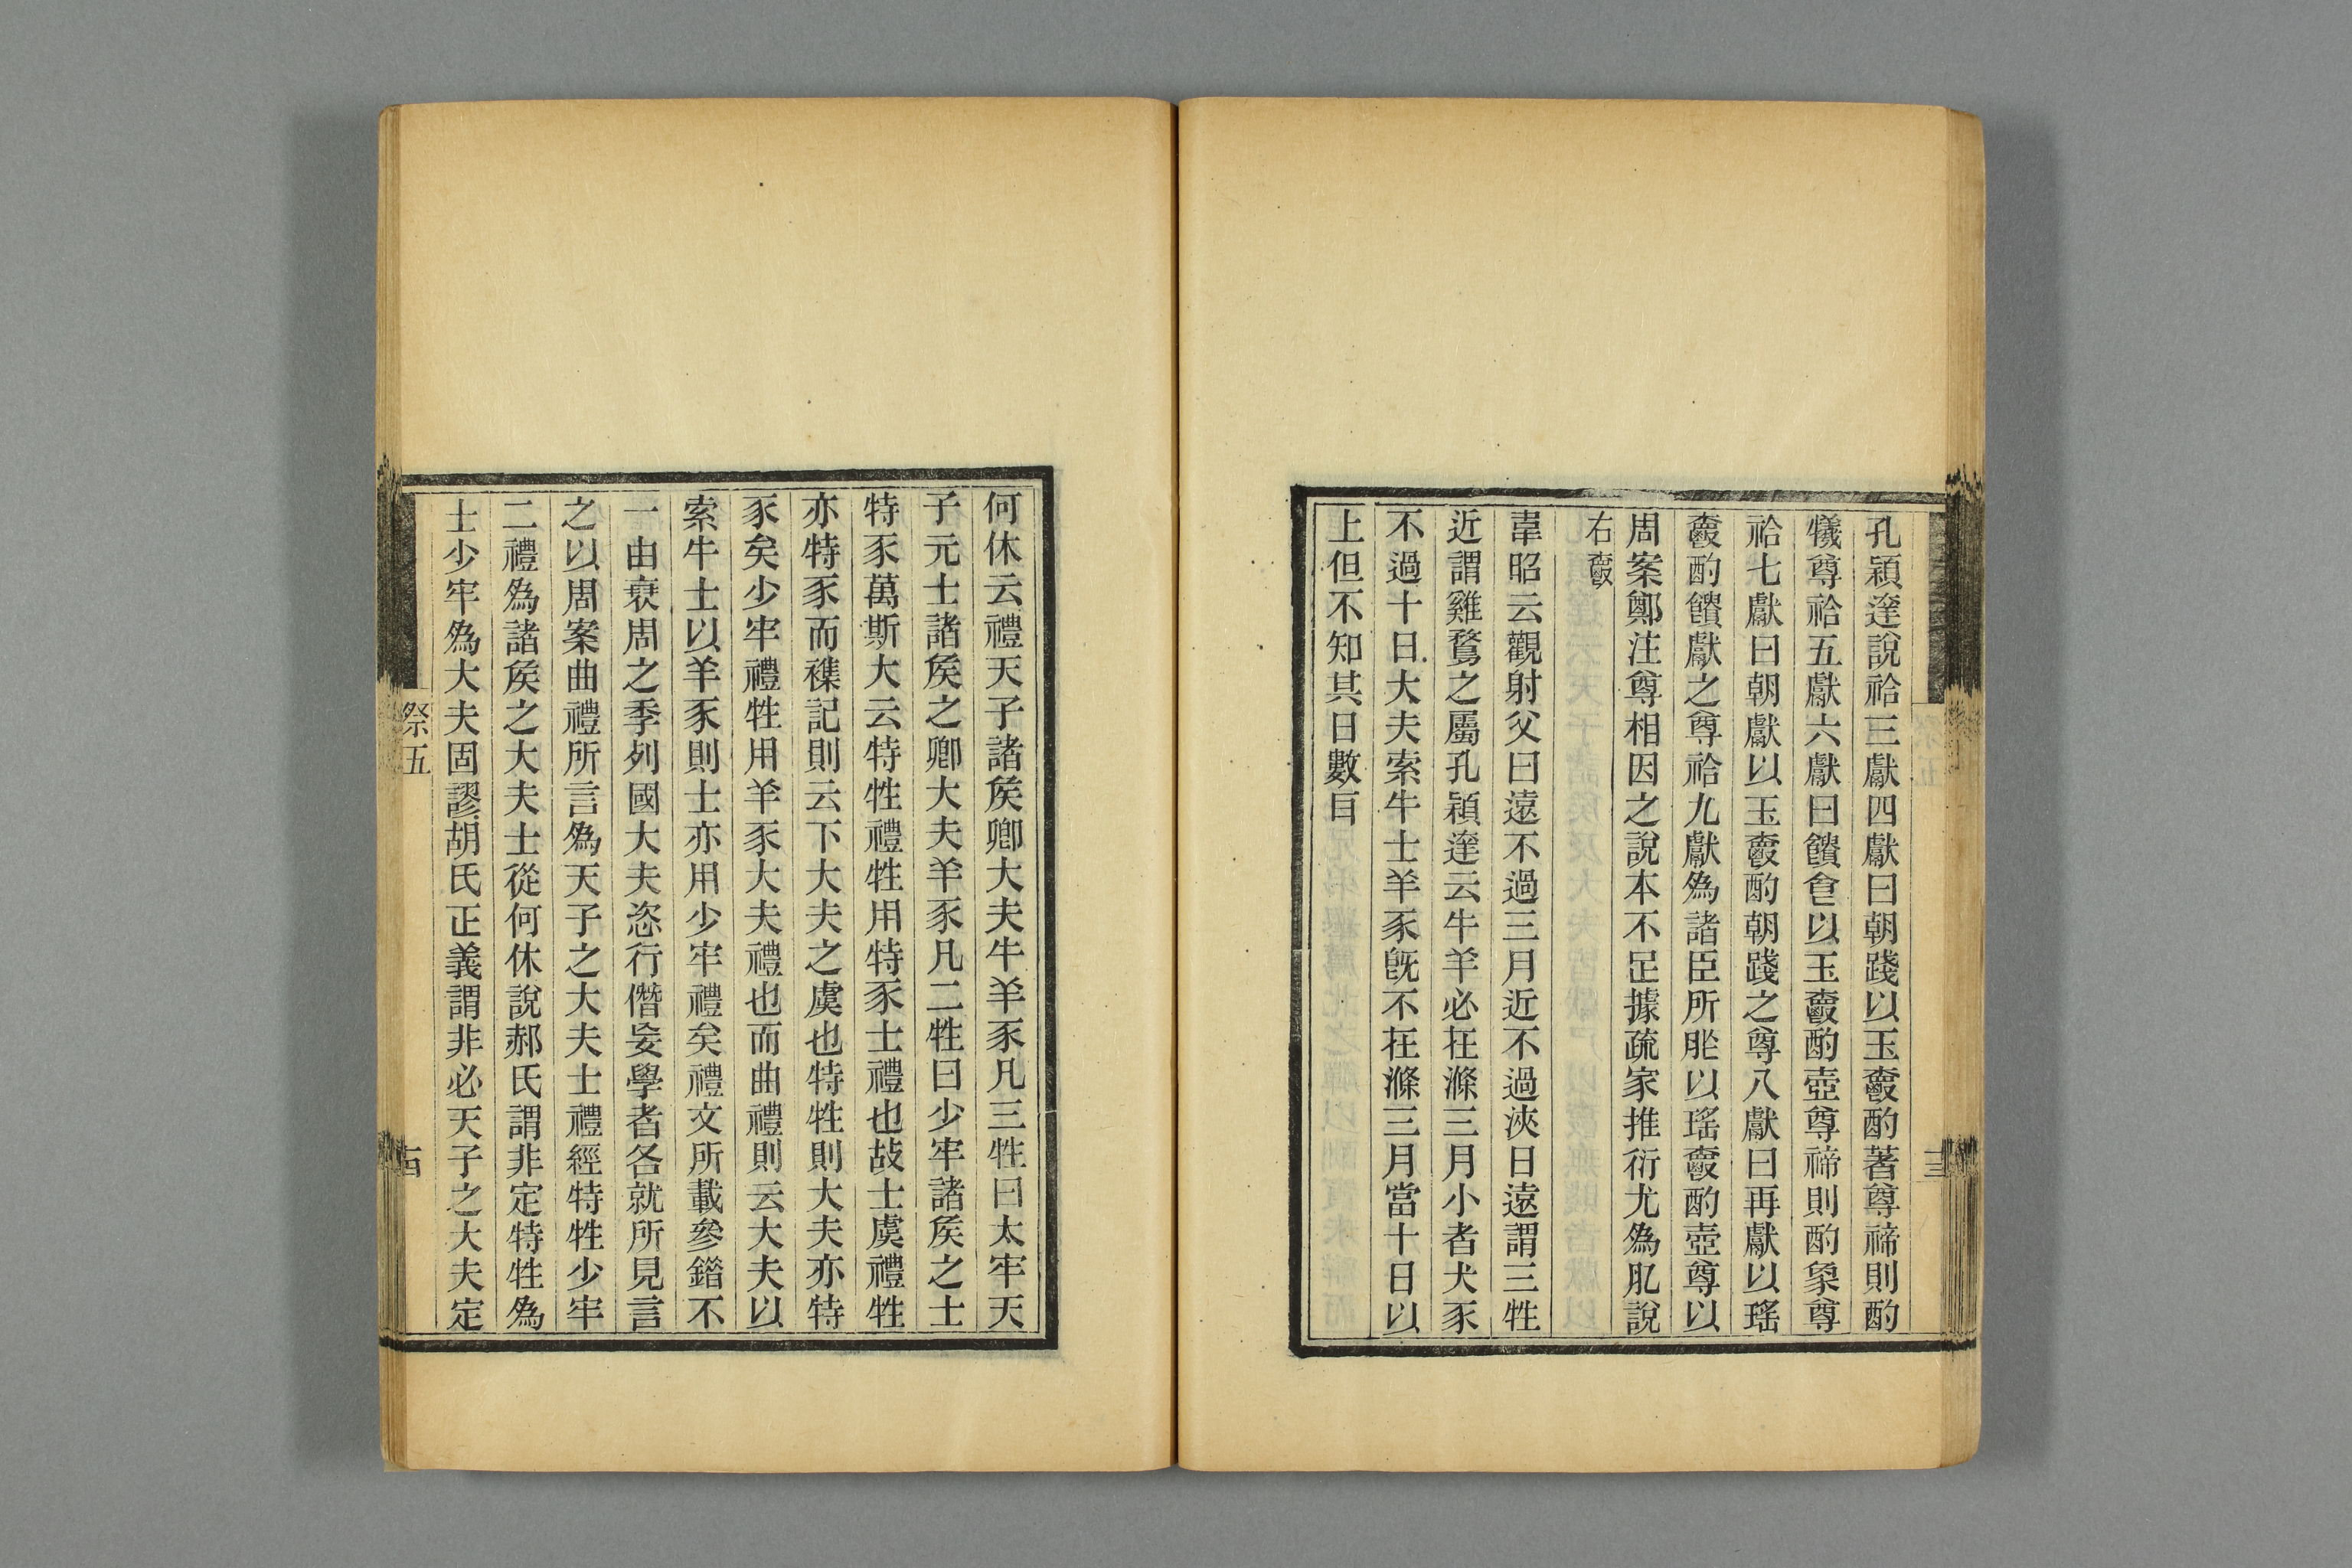 孔穎達說祫三獻四獻曰朝踐以玉𧯷酌著尊禘則酌
犧尊祫五獻六獻曰饋食以玉𧯷酌壺尊禘則酌象尊
祫七獻曰朝獻以玉𧯷酌朝踐之尊八獻曰再獻以瑤
𧯷酌饋獻之尊祫九獻為諸臣所胙以瑤𧯷酌壺尊以
周案鄭注尊相因之說本不足據疏家推衍尤為肊說
右𧯷
韋昭云觀射父曰遠不過三月近不過浹日遠謂三牲
近謂雞鶩之屬孔穎達云牛羊必在滌三月小者犬豕
不過十日大夫索牛士羊豕旣不在滌三月當十日以
上但不知其日數百
何休云禮天子諸矦卿大夫牛羊豕凡三牲曰太牢天
子元士諸矦之卿大夫羊豕凡二牲曰少牢諸矦之士
特豕萬斯大云特牲禮牲用特豕士禮也故士虞禮牲
亦特豕而襍記則云下大夫之虞也特牲則大夫亦特
豕矣少牢禮牲用羊豕大夫禮也而曲禮則云大夫以
索牛士以羊豕則士亦用少牢禮矣禮文所載參錯不
一由衰周之季列國大夫恣行僭妄學者各就所見言
之以周案曲禮所言為天子之大夫士禮經特牲少牢
二禮為諸矦之大夫士從何休說郝氏謂非定特牲為
士少牢為大夫固謬胡氏正義謂非必天子之大夫定
祭五
十四
十三